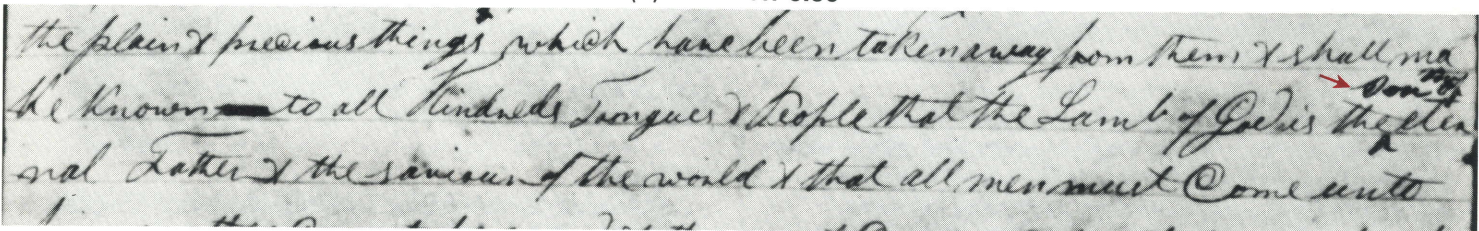 the plain & precious things which have been taken away from them & shall ma
Son of
ke known to all Kindreds Toongues & People that the Lamb of God is the eter
nal Father & the saviour of the world & that all men must Come unto